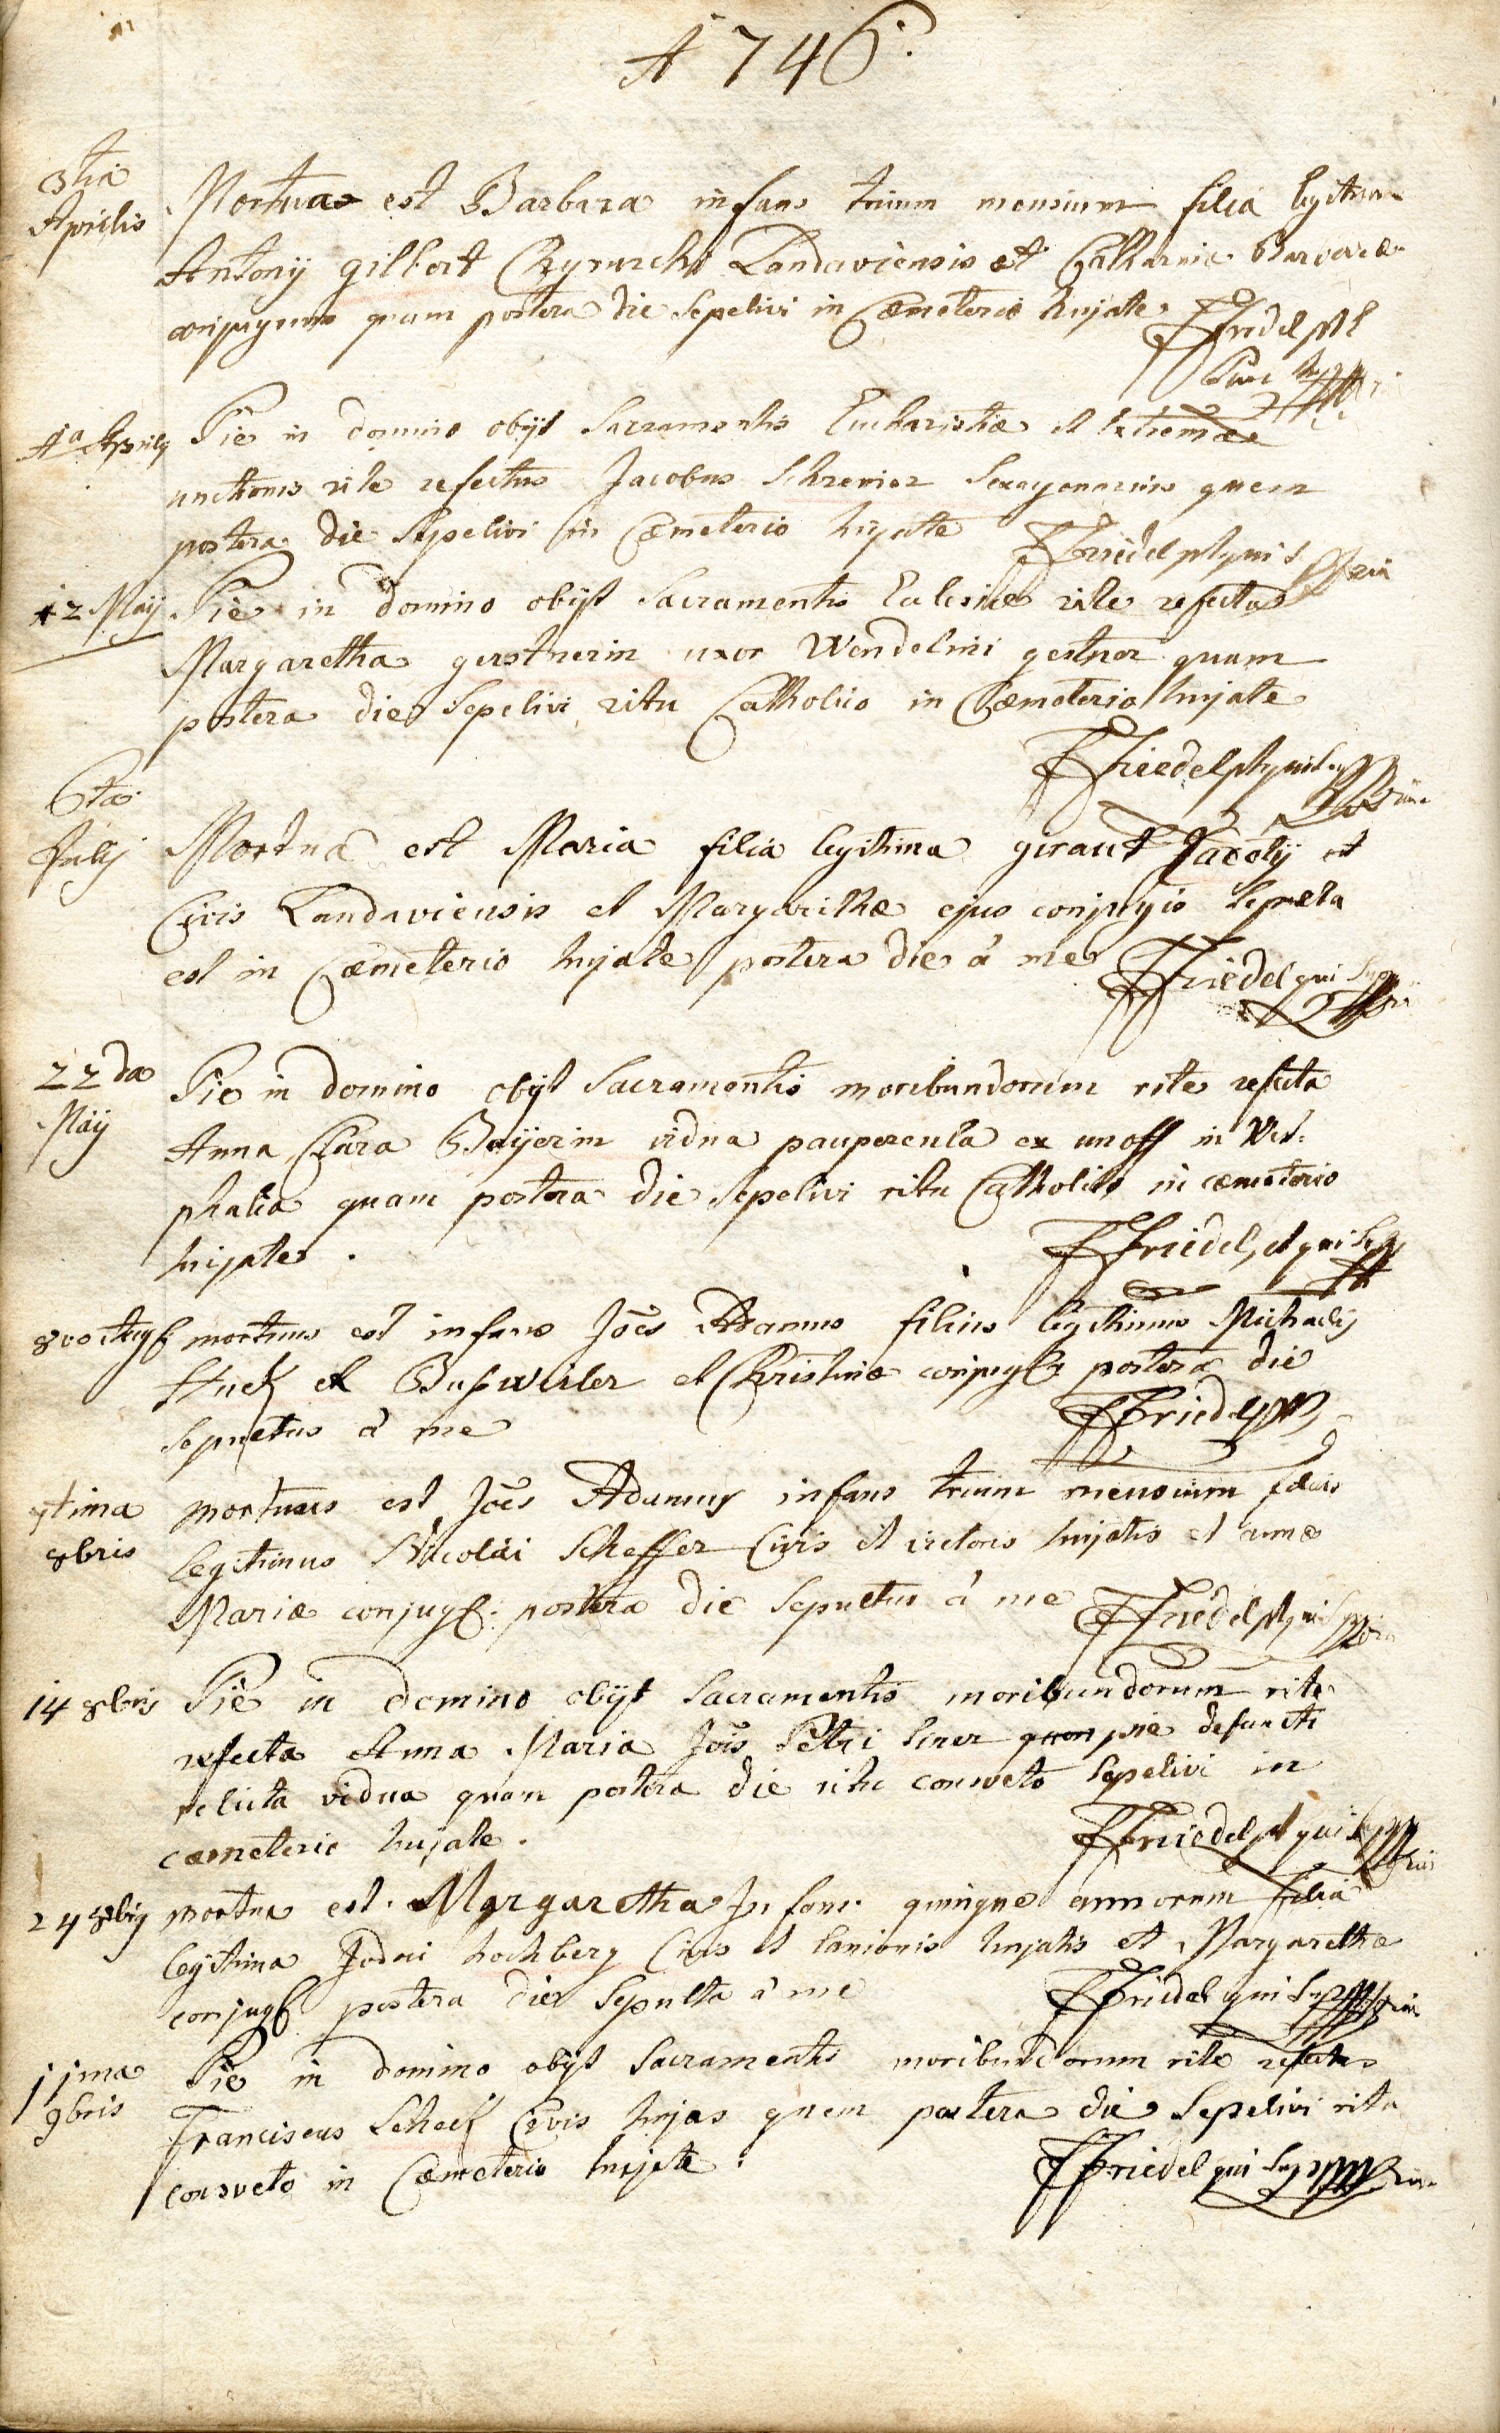 A 1746.
3tia Aprilis Mortua est Barbara infans trium mensium filia legitima
Antonij gilbert Chyrurchi Landaviensis et Catharinæ Barbaræ
conjugum quam postera die Sepelivi in Cœmeterio hujate. FFridel
4ta Aprilis Pie in domino obijt Sacramentis Eucharistiæ et extremæ
unctionis rite refectus Jacobus Schreiner Sexagenarius quem
postera die Sepelivi in Cœmeterio hujate FFriedel
12 Maij Pie in domino obijt Sacramentis Eclesiæ rite refecta
Margaretha gerstnerin uxor Wendelini gestner quam
postera die Sepelivi ritu Catholico in Cœmeterio hujate
FFriedel
6ta Julij Mortua est Maria filia legitima geraut Jacobij et
Civis Landaviensis et Margarithæ ejus conjugio Sepulta
est in Cœmeterio hujate postera die à me FFriedel qui Supra
22da Maij Pie in domino obijt Sacramentis moribundorum rite refecta
Anna Clara Baijerin vidua paupercula ex unoff in Vest-
phalia quam postera die Sepelivi ritu Catholico in cœmeterio
hujate. FFriedel, et qui Supra
8vo Augs mortuus est infans Jões Adamus filius legithimus Michaelis
Stuck et Busweiler et Christinæ conjugs postera die
Sepultus à me FFriedel
7tima 8bris mortuus est Jões Adamus infans trium mensium filius
legitimus Nicolai Scheffer Civis et vietoris hujatis et annæ
Mariæ conjugs: postera die Sepultus à me FFriedel
14 8bris Pie in domino obijt Sacramentis moribundorum rite
refecta Anna Maria Jõis Petri piæ defuncti
relicta vidua quam postera die ritu consveto Sepelivi in
cœmeterio hujate. FFriedel qui Supra
24 8bris mortua est Margaretha Infans quinque annorum filia
legitima Jodoci hochberg Civis et lanionis hujatis et Margarethæ
conjugs postera die Sepulta à me FFriedel qui Supra
11ma 9bris Pie in domino obijt Sacramentis moribundorum rite refectus
Franciscus Scheck Civis hujas quem postera die Sepelivi ritu
consveto in Cœmeterio hujate: FFriedel qui Supra